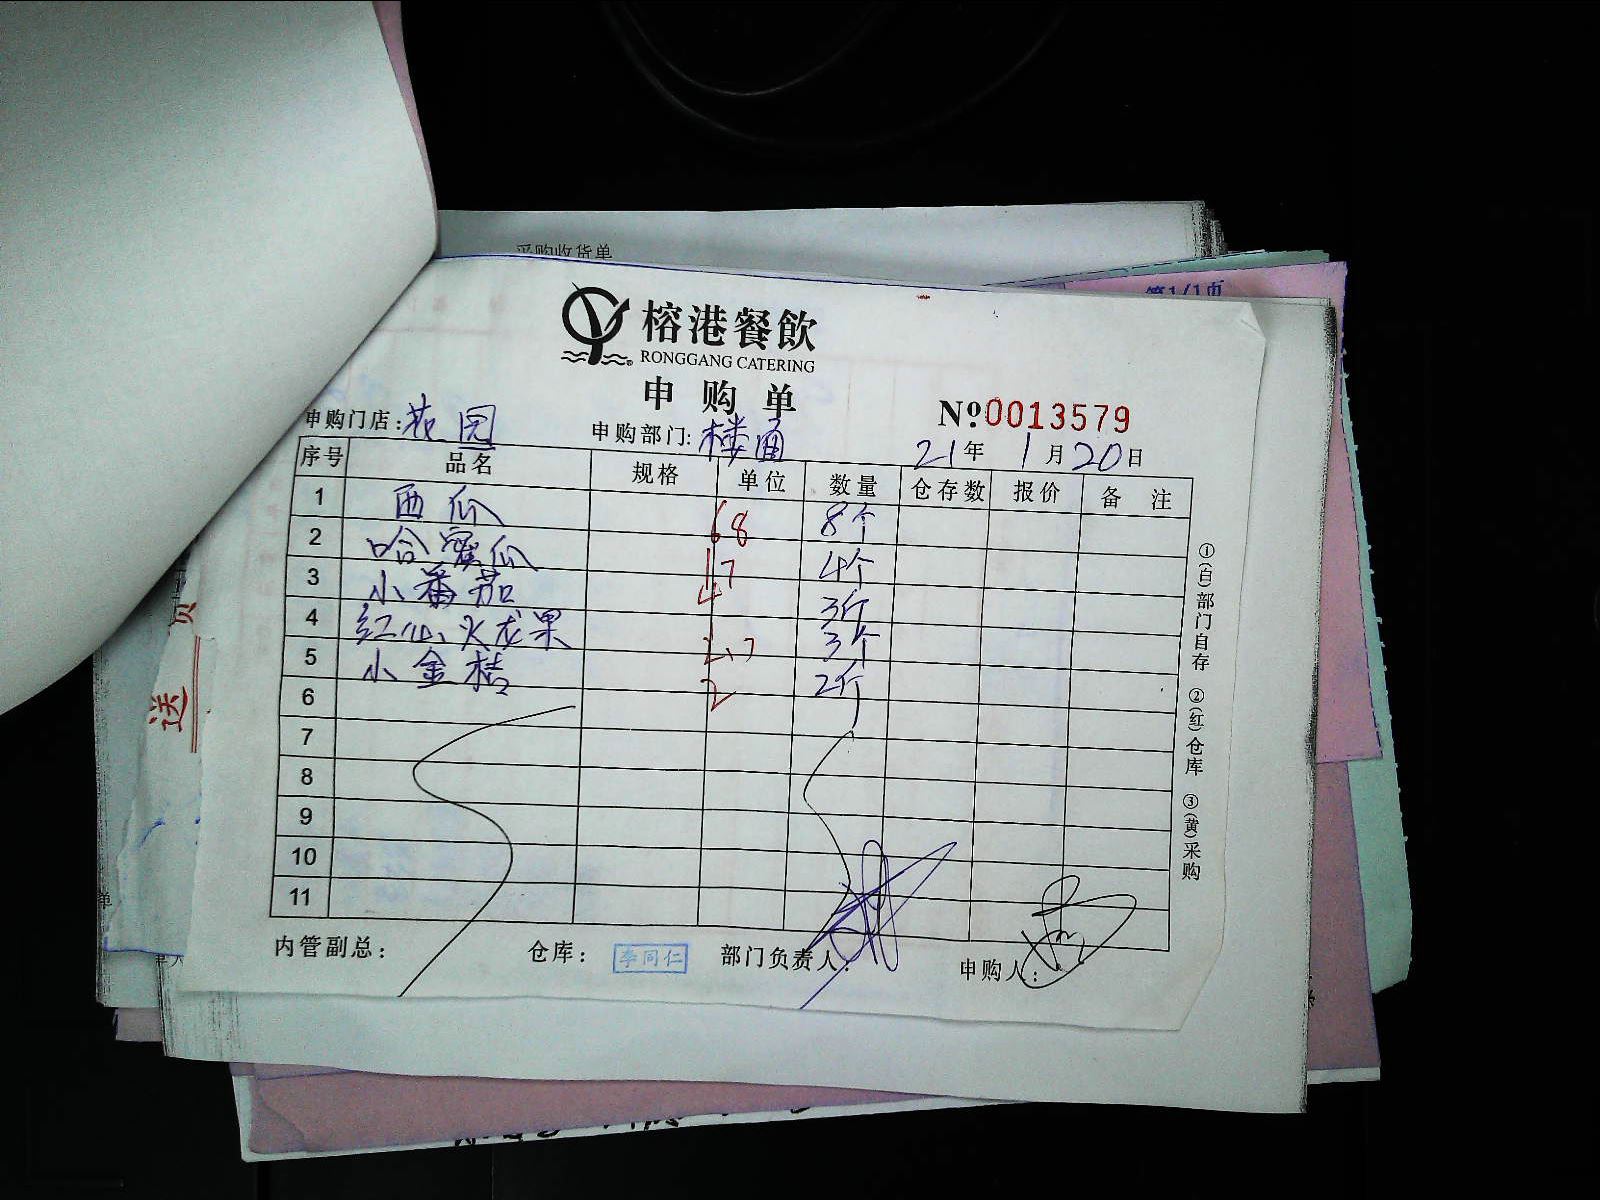 采购收货单
第1/1页
榕港餐飲
RONGGANG CATERING
申购单
№0013579
申购门店:花园 申购部门:楼面 21年1月20日
序号 品名 规格 单位 数量 仓存数 报价 备注
1 西瓜 68 8个
2 哈蜜瓜 17 4个
3 小番茄 4 3斤
4 红心火龙果 2.7 3个
5 小金桔 2 2斤
6
7
8
9
10
11
内管副总: 仓库: 李同仁 部门负责人: 申购人:
①(白)部门自存 ②(红)仓库 ③(黄)采购
送
单